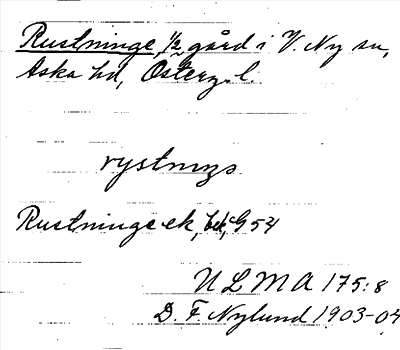 Rustninge 1/2 gård i V. Ny sn,
Aska hd, Österg. l.
rystnıngs
Rustninge ek, bl. G 54
ULMA 175:8
D. F. Nylund 1903-04